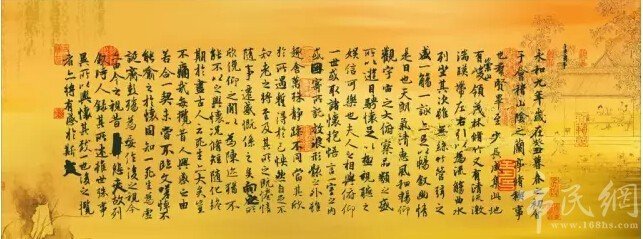 永和九年歲在癸丑暮春之初會
于會稽山陰之蘭亭脩稧事
也羣賢畢至少長咸集此地
有崇山峻領茂林脩竹又有清流激
湍暎帶左右引以為流觴曲水
列坐其次雖無絲竹管弦之
盛一觴一詠亦足以暢敘幽情
是日也天朗氣清惠風和暢仰
觀宇宙之大俯察品類之盛
所以遊目騁懷足以極視聽之
娛信可樂也夫人之相與俯仰
一世或取諸懷抱悟言一室之內
或因寄所託放浪形骸之外雖
趣舍萬殊靜躁不同當其欣
於所遇暫得於己怏然自足不
知老之將至及其所之既惓情
隨事遷感慨係之矣向之所
欣俛仰之間以為陳迹猶不
能不以之興懷況脩短隨化終
期於盡古人云死生亦大矣豈
不痛哉每攬昔人興感之由
若合一契未嘗不臨文嗟悼不
能喻之於懷固知一死生為虛
誕齊彭殤為妄作後之視今
亦由今之視昔悲夫故列
敘時人錄其所述雖世殊事
異所以興懷其致一也後之攬
者亦將有感於斯文
市民網
www.168hs.com